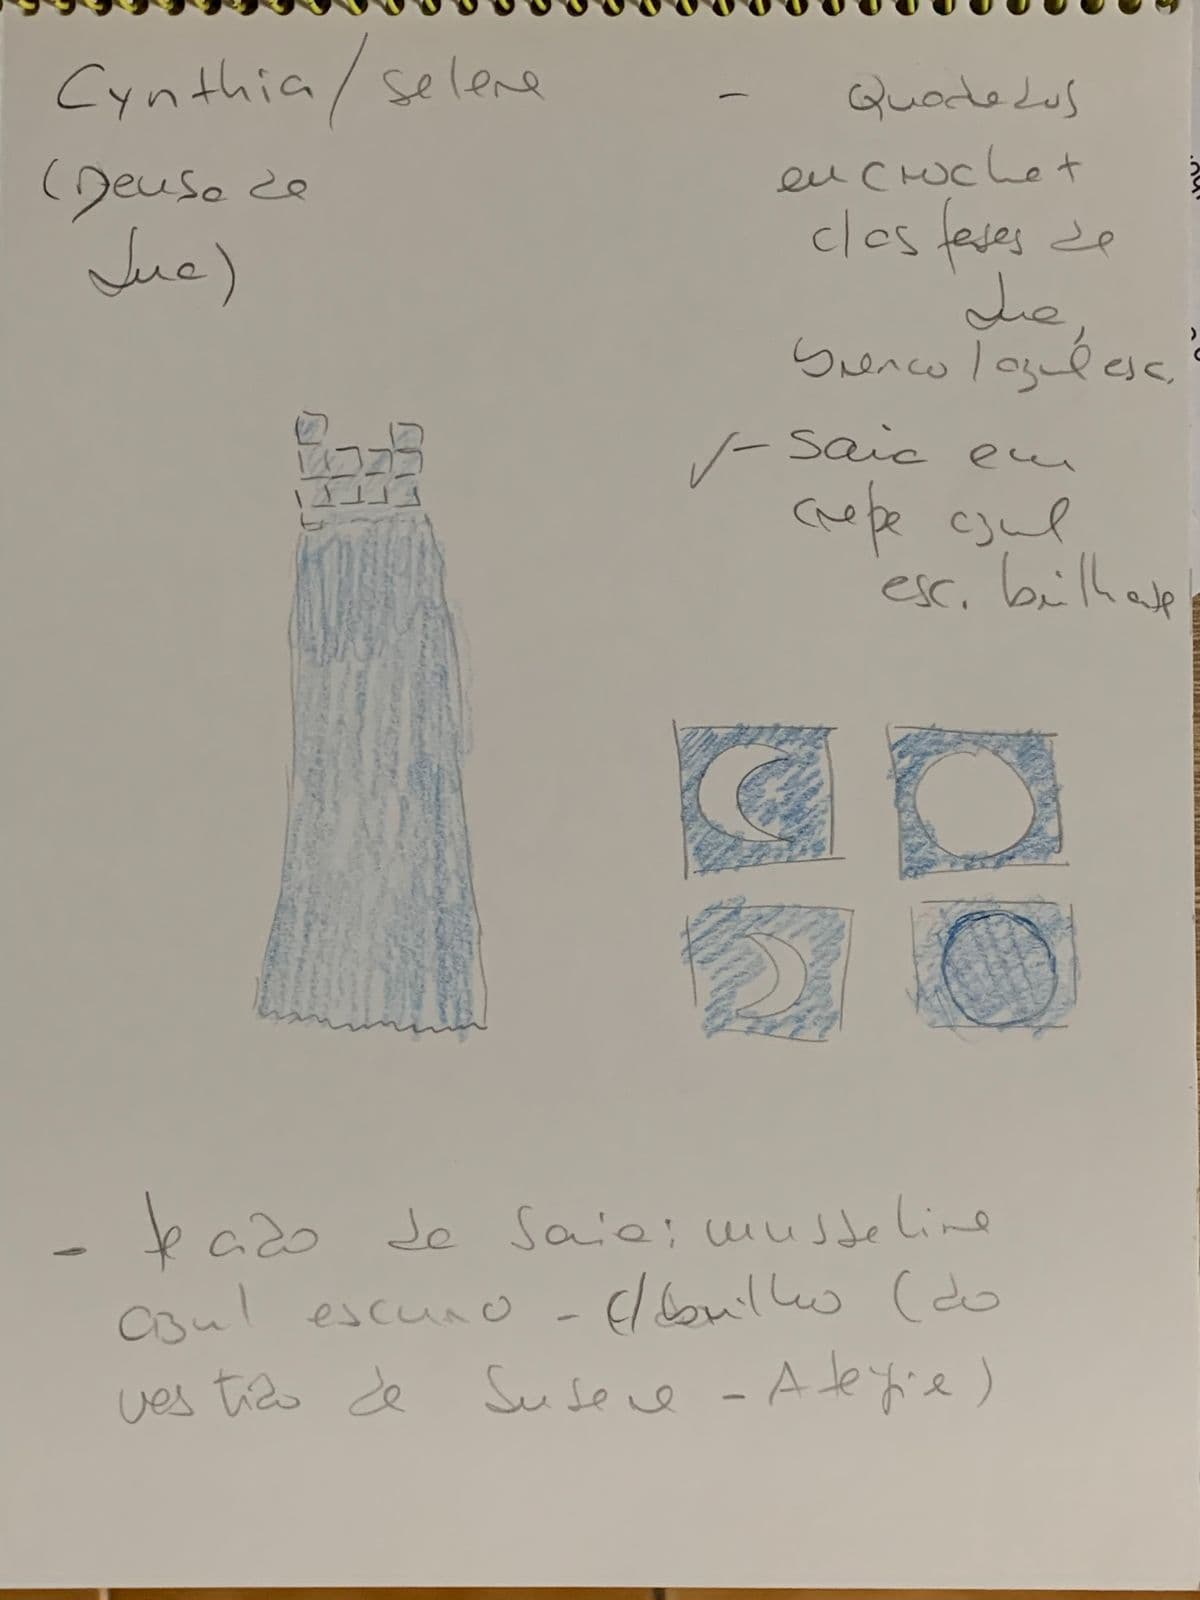 Cynthia/Selene
(Deusa da
Lua)
- Quadrados
em crochet
c/ as fases da
Lua,
branco/azul esc.
✓- Saia em
crepe azul
esc. brilhante
- tecido da saia: musseline
azul escuro - c/ brilho (do
vestido de Susene - )